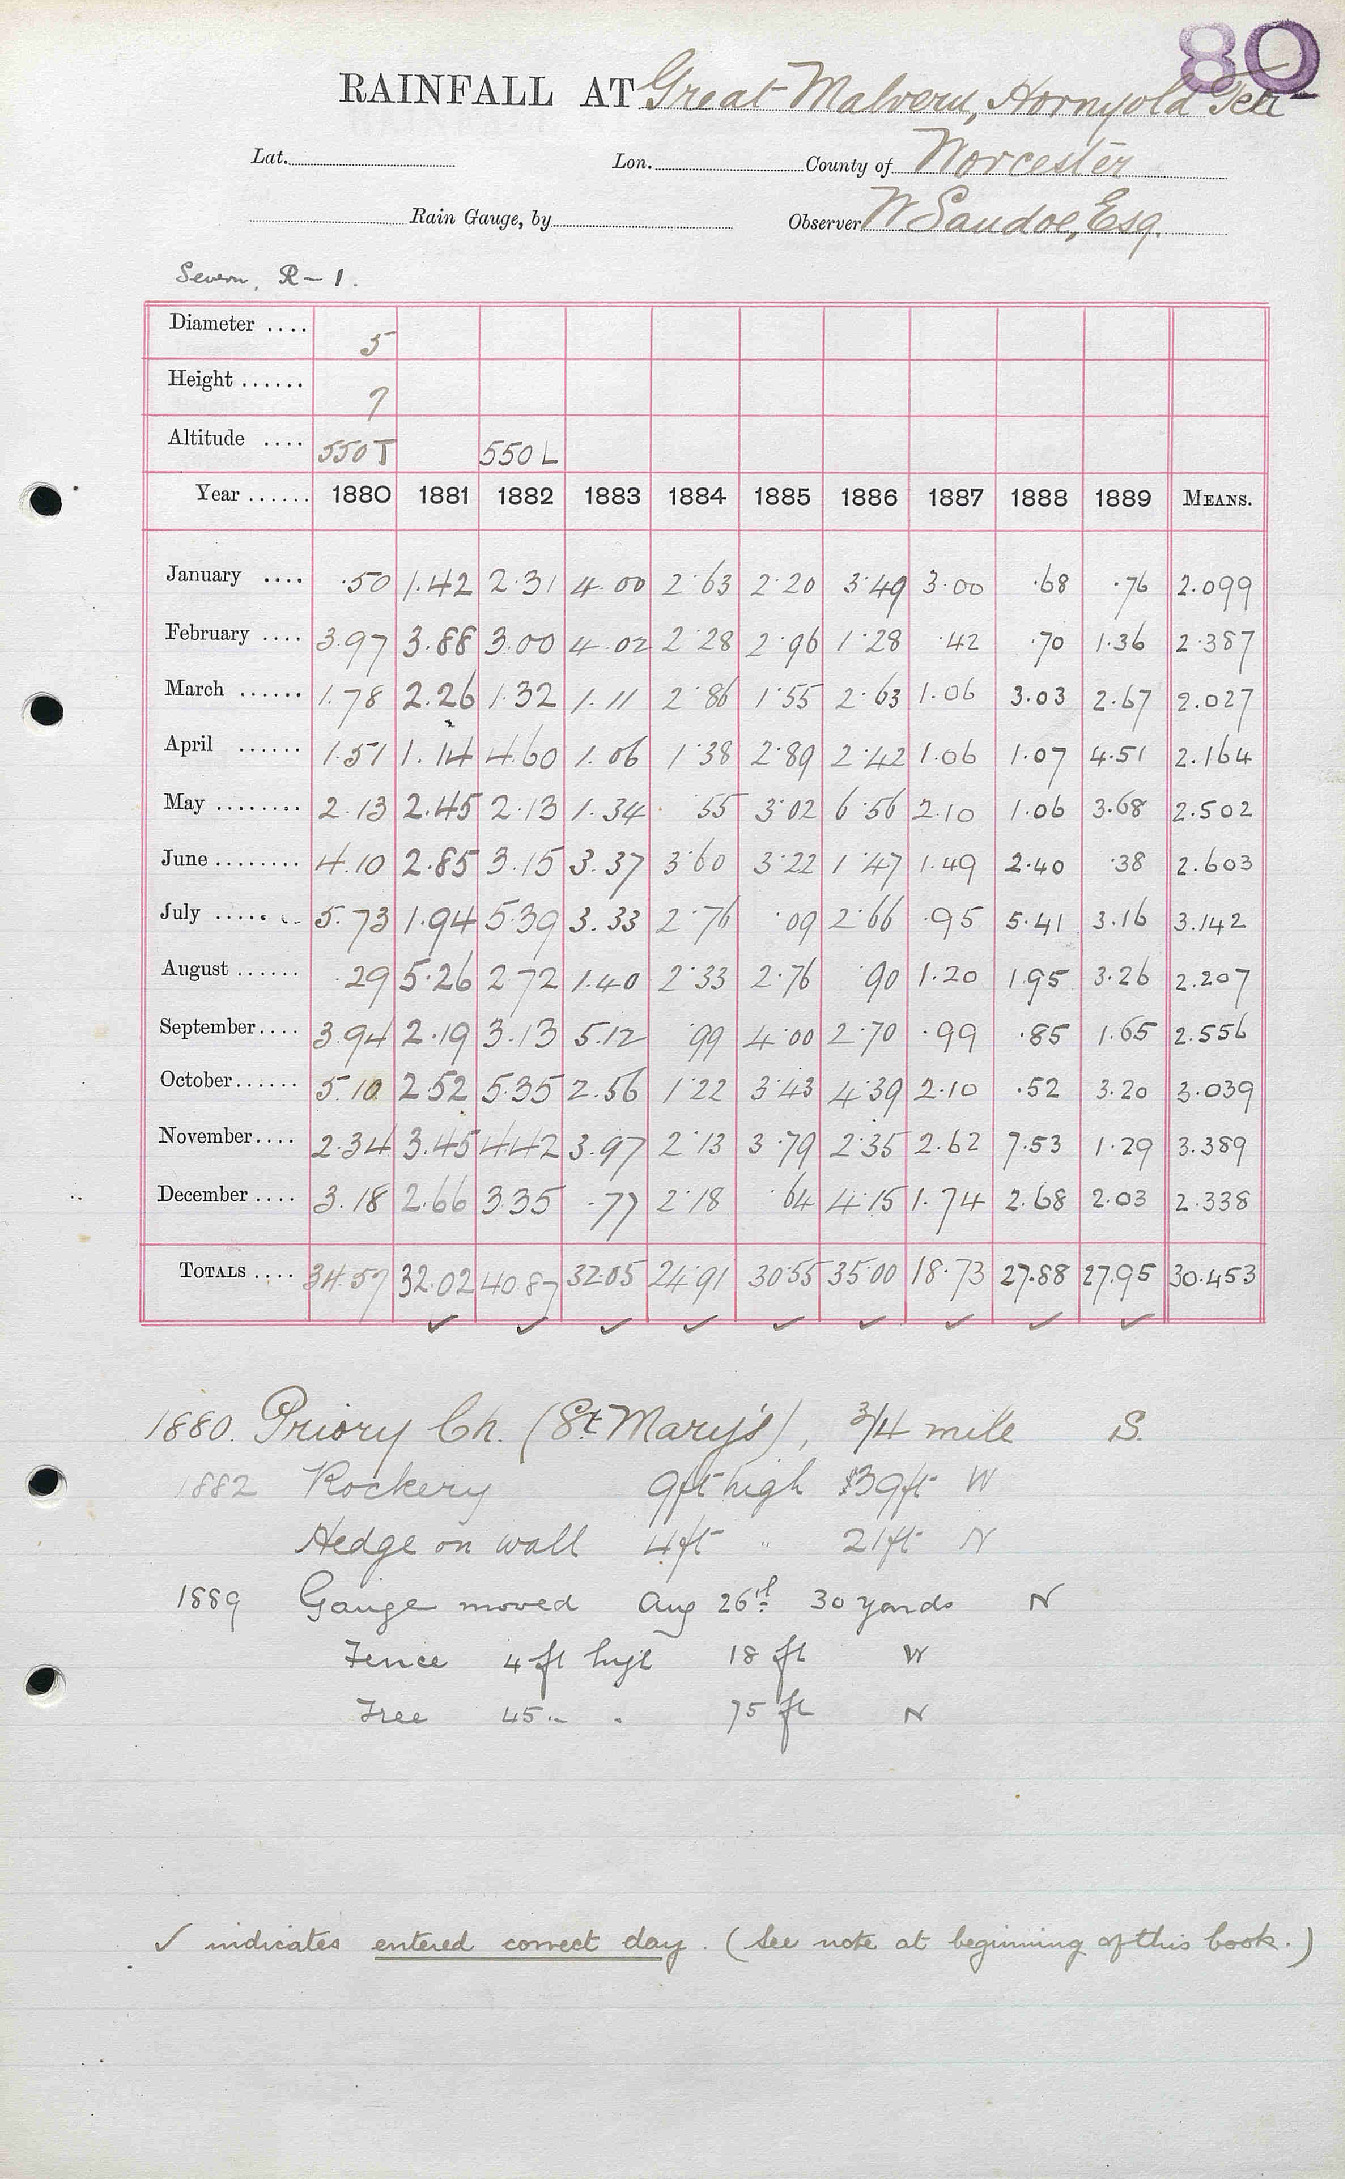 80
RAINFALL AT Great Malvern, Hornyold
Lat. Lon. County of Worcester
Rain Gauge, by Observer W Sandoe, Esq.
Severn, R-1.
Diameter .... 5
Height ...... ?
Altitude .... 550 T 550 L
Year ...... 1880 1881 1882 1883 1884 1885 1886 1887 1888 1889 MEANS.
January .... .50 1.42 2.31 4.00 2.63 2.20 3.49 3.00 .68 .76 2.099
February .... 3.97 3.88 3.00 4.02 2.28 2.96 1.28 .42 .70 1.36 2.387
March ...... 1.78 2.26 1.32 1.11 2.86 1.55 2.63 1.06 3.03 2.67 2.027
April ...... 1.51 1.14 4.60 1.06 1.38 2.89 2.42 1.06 1.07 4.51 2.164
May ........ 2.13 2.45 2.13 1.34 .55 3.02 6.56 2.10 1.06 3.68 2.502
June ........ 4.10 2.85 3.15 3.37 3.60 3.22 1.47 1.49 2.40 .38 2.603
July ........ 5.73 1.94 5.39 3.33 2.76 .09 2.66 .95 5.41 3.16 3.142
August ...... .29 5.26 2.72 1.40 2.33 2.76 .90 1.20 1.95 3.26 2.207
September.... 3.94 2.19 3.13 5.12 .99 4.00 2.70 .99 .85 1.65 2.556
October...... 5.10 2.52 5.35 2.56 1.22 3.43 4.39 2.10 .52 3.20 3.039
November.... 2.34 3.45 4.42 3.97 2.13 3.79 2.35 2.62 7.53 1.29 3.389
December .... 3.18 2.66 3.35 .77 2.18 .64 4.15 1.74 2.68 2.03 2.338
TOTALS .... 34.57 32.02 40.87 32.05 24.91 30.55 35.00 18.73 27.88 27.95 30.453
✓ ✓ ✓ ✓ ✓ ✓ ✓ ✓ ✓
1880. Priory Ch. (St Mary's), 3/4 mile S.
1882 Rockery 9ft high 39ft W
Hedge on wall 4ft " 21ft N
1889 Gauge moved Aug 26th 30 yards N
Fence 4 ft high 18 ft W
Tree 45 " " 75 ft N
✓ indicates entered correct day. (See note at beginning of this book.)